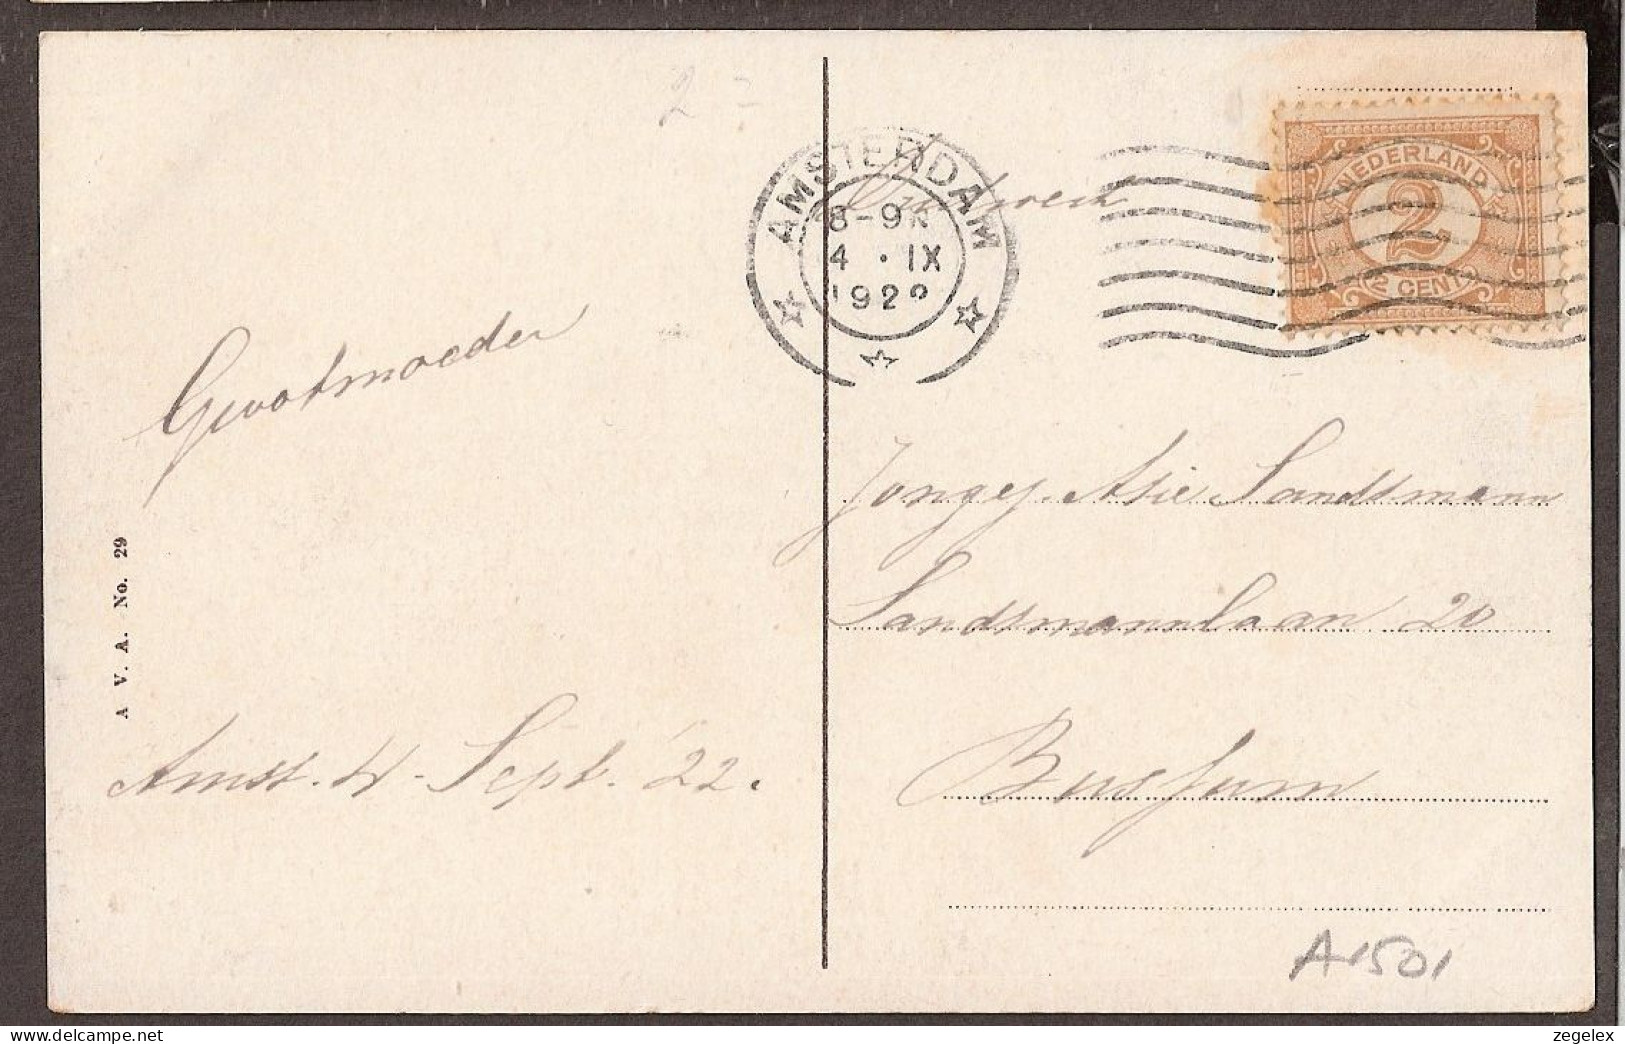 2 =
AMSTERDAM
8-9 N
4 . IX
1922
Drukwerk
NEDERLAND
2
2 CENT
Grootmoeder
Jongej. Asie Sandtmann
Sandtmannlaan 20
Bussum
A V. A. No. 29
Amst. 4 - Sept. '22.
A1501
zegelex